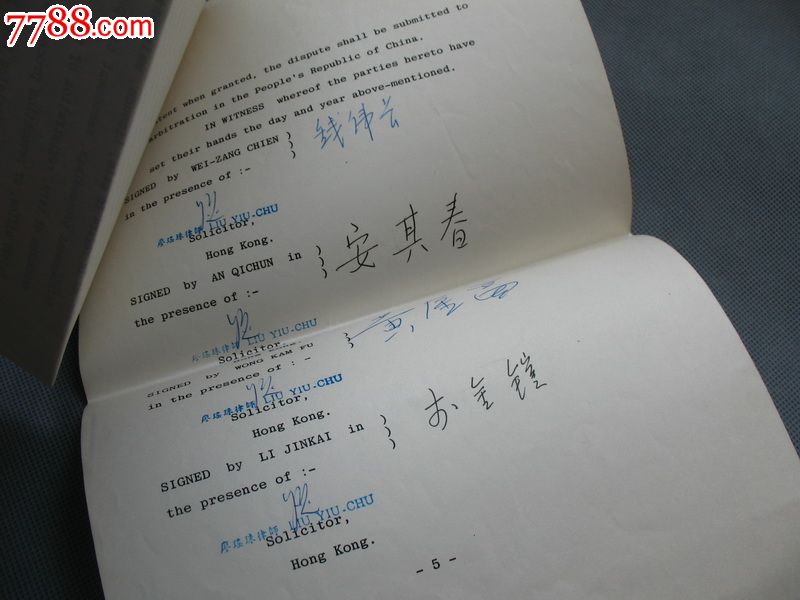 7788.com
tent when granted, the dispute shall be submitted to
arbitration in the People's Republic of China.
IN WITNESS whereof the parties hereto have
set their hands the day and year above-mentioned.
SIGNED by WEI-ZANG CHIEN )
in the presence of :- )
钱伟长
廖瑤珠律師 LIU YIU-CHU
Solicitor,
Hong Kong.
SIGNED by AN QICHUN in )
the presence of :- )
安其春
廖瑤珠律師 LIU YIU-CHU
Solicitor
SIGNED by WONG KAM FU )
in the presence of :-
廖瑤珠律師 LIU YIU-CHU
Solicitor,
Hong Kong.
SIGNED by LI JINKAI in )
the presence of :- )
李金鎧
廖瑤珠律師 LIU YIU-CHU
Solicitor,
Hong Kong.
- 5 -